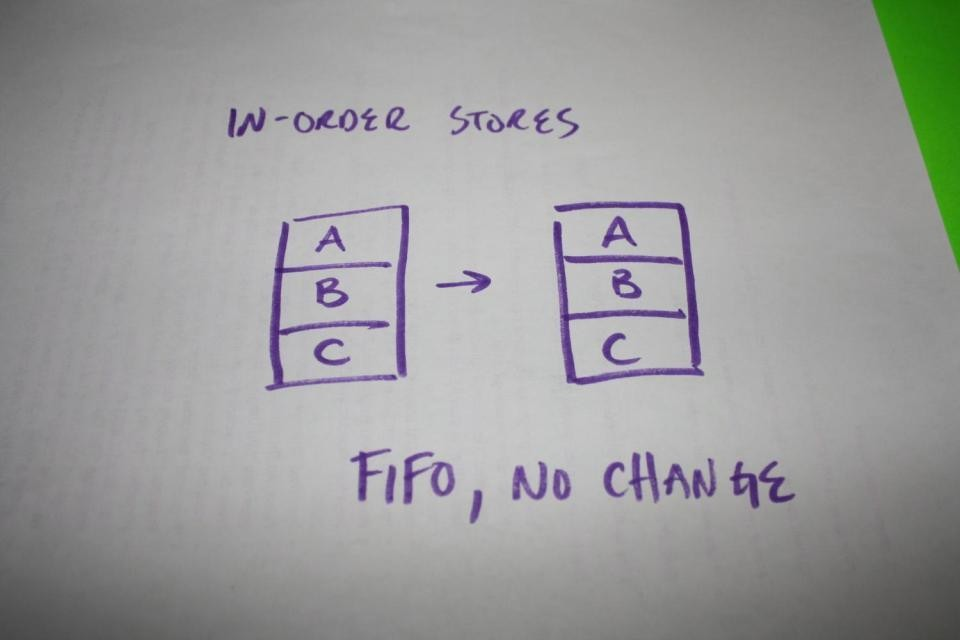 IN-ORDER STORES
A → A
B B
C C
FIFO, NO CHANGE